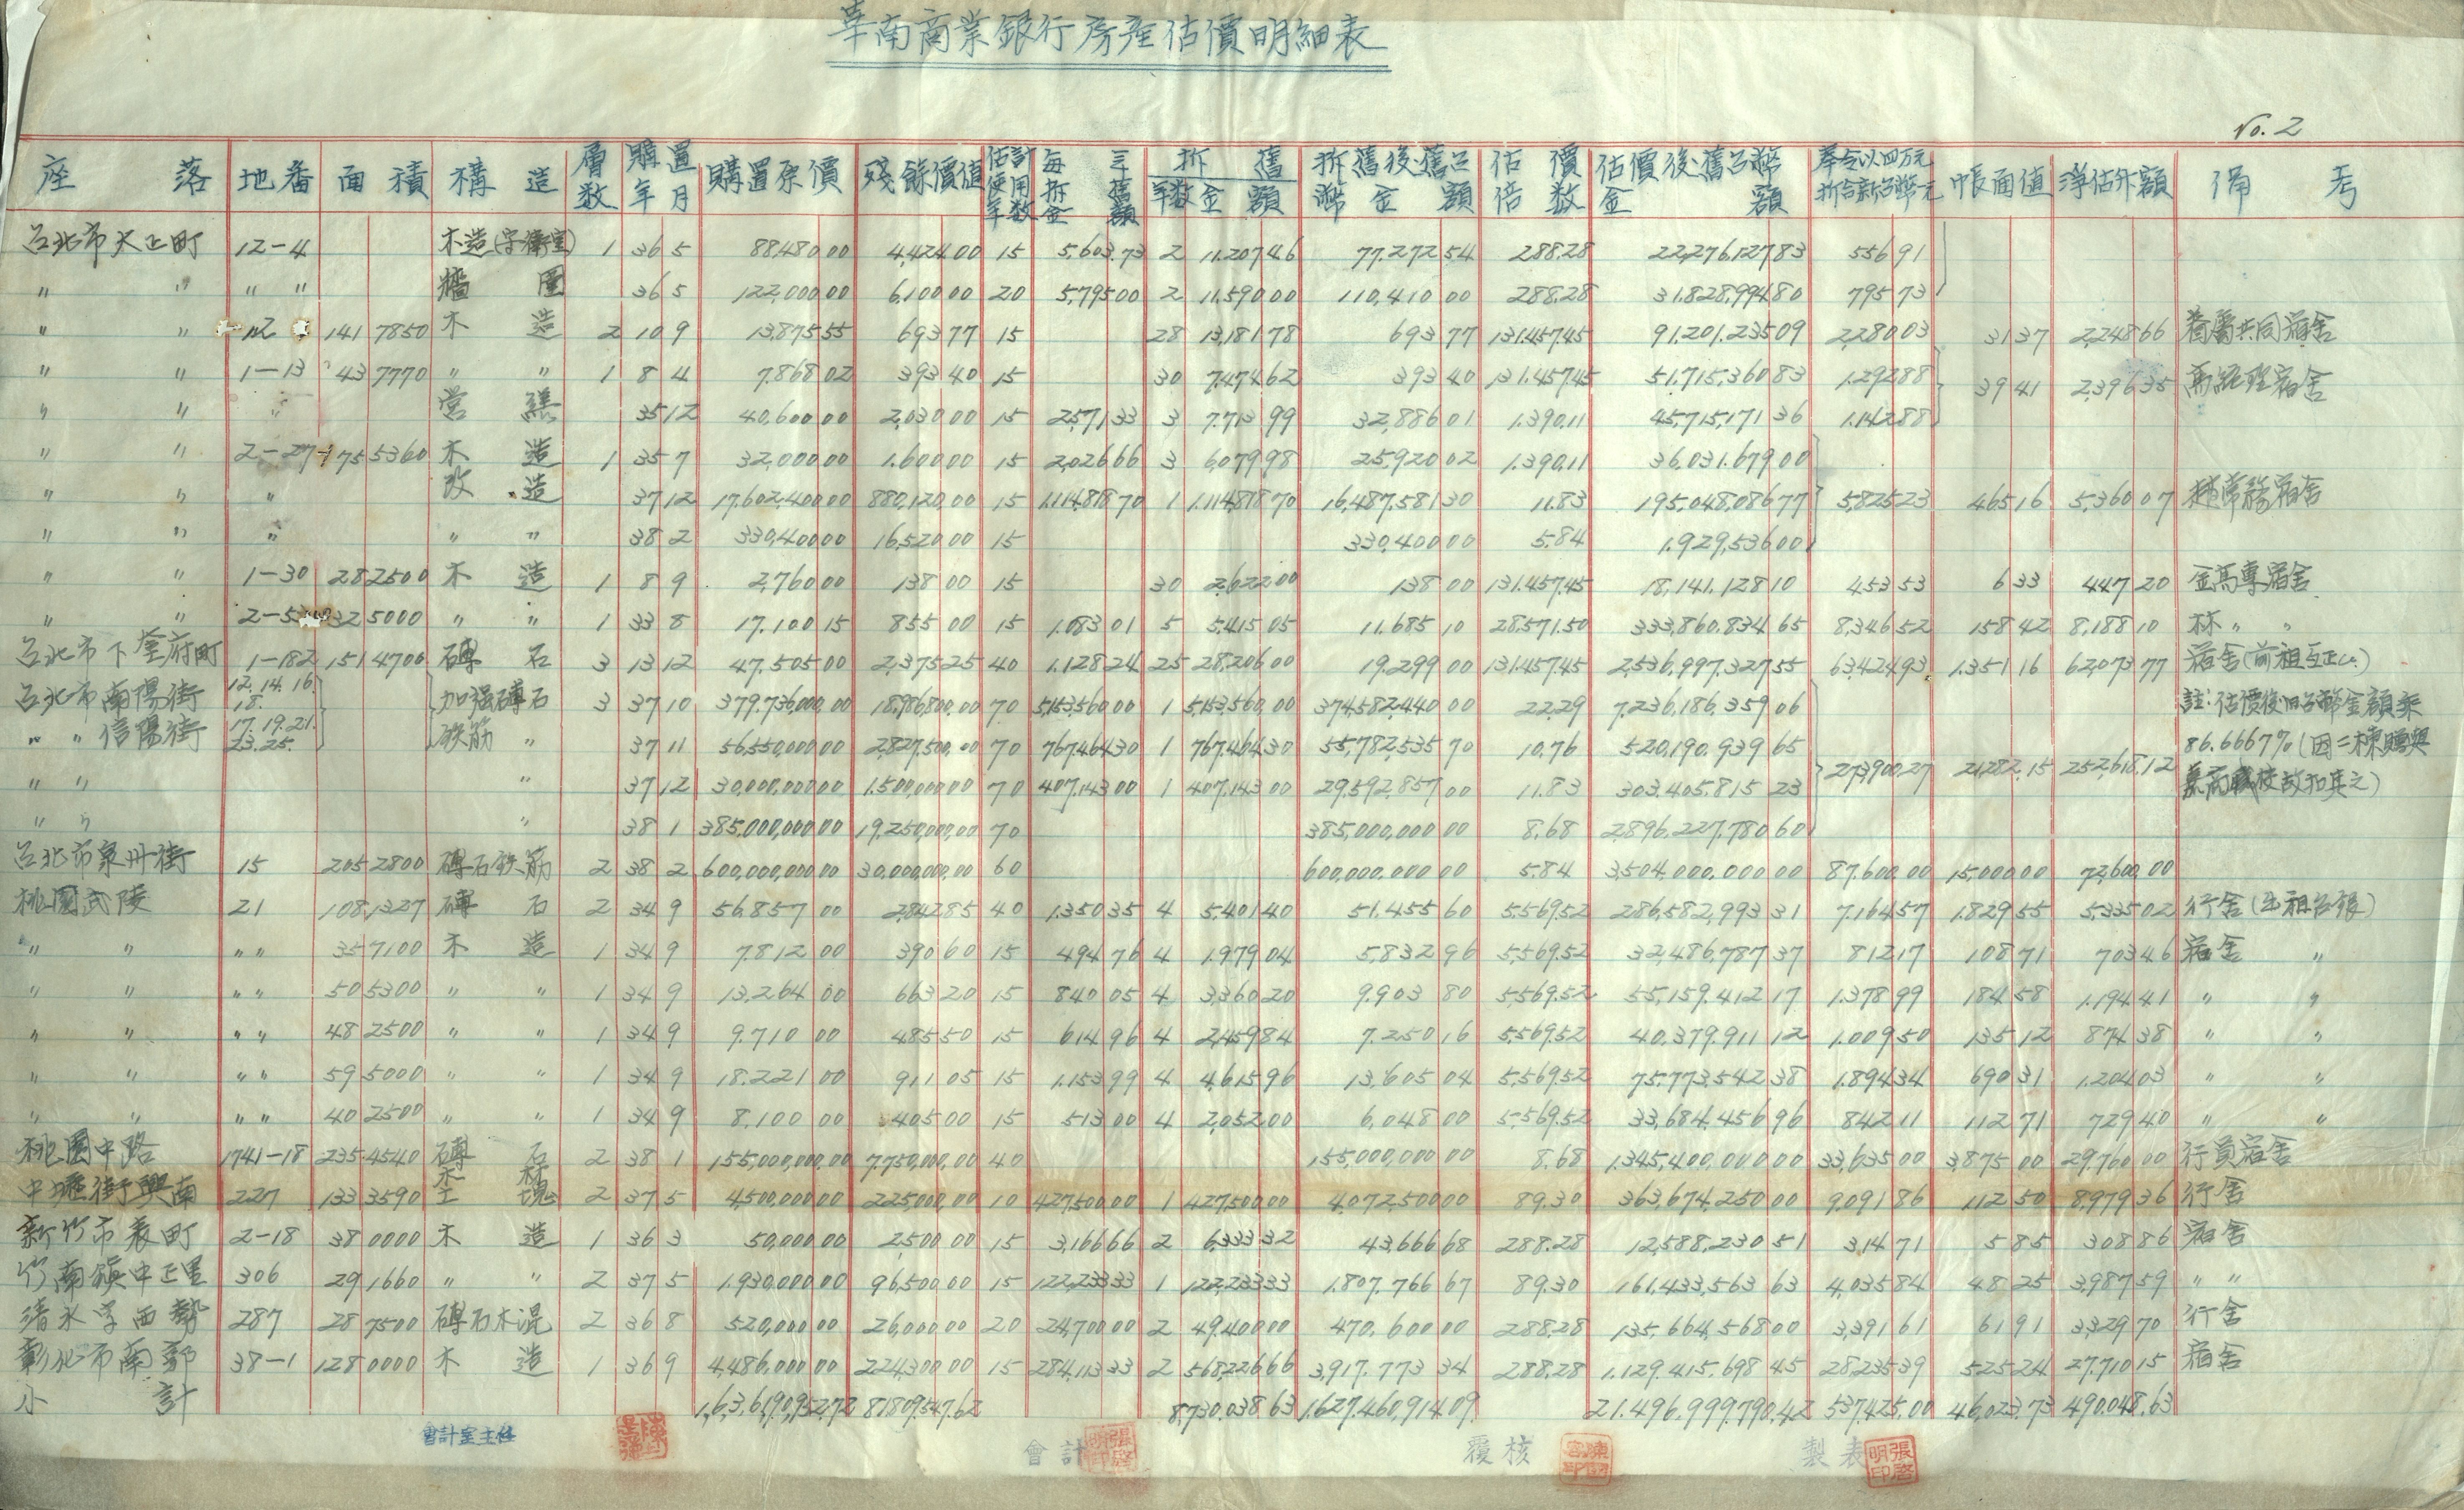 華南商業銀行房產估價明細表
No. 2
座落 地番 面積 構造 層数 購置年月 購置原價 殘餘價值 估計使用年数 每年折舊金額 折舊年数 金額 折舊後舊台幣金額 估價倍数 估價後舊台幣金額 奉令以四万元折合新台幣一元 帳面值 淨估外額 備考
台北市大正町 12-4 木造(守衛室) 1 36 5 88,480 00 4,424 00 15 5,603.73 2 11,207 46 77,272 54 288.28 22,276,127 83 556 91
〃 〃 〃 〃 牆圍 36 5 122,000 00 6,100 00 20 5,795 00 2 11,590 00 110,410 00 288.28 31,828,994 80 795 73
〃 〃 141 7850 木造 2 10 9 13,875 55 693 77 15 28 13,181 78 693 77 131,457.45 91,201,235 09 2,280 03 31 37 2,248 66 眷屬共同宿舍
〃 〃 1-13 43 7770 〃 〃 1 8 4 7,868 02 393 40 15 30 7,474 62 393 40 131,457.45 51,715,360 83 1,292 88 39 41 2,396 35 高經理宿舍
〃 〃 〃 營繕 35 12 40,600 00 2,030 00 15 2,571 33 3 7,713 99 32,886 01 1,390.11 45,715,171 36 1,142 88
〃 〃 2-27-1 75 5360 木造 1 35 7 32,000 00 1,600 00 15 2,026 66 3 6,079 98 25,920 02 1,390.11 36,031,679 00
〃 〃 〃 改造 37 12 17,602,400 00 880,120 00 15 1,114,818 70 1 1,114,818 70 16,487,581 30 11.83 195,048,086 77 5,825 23 465 16 5,360 07 常務宿舍
〃 〃 〃 〃 〃 38 2 330,400 00 16,520 00 15 330,400 00 5.84 1,929,536 00
〃 〃 1-30 28 2500 木造 1 8 9 2,760 00 138 00 15 30 2,622 00 138 00 131,457.45 18,141,128 10 453 53 6 33 447 20 金高專宿舍
〃 〃 32 5000 〃 〃 1 33 8 17,100 15 855 00 15 1,083 01 5 5,415 05 11,685 10 28,571.50 333,860,834 65 8,346 52 158 42 8,188 10 林 〃 〃
台北市下奎府町 1-182 151 4706 磚石 3 13 12 47,505 00 2,375 25 40 1,128 24 25 28,206 00 19,299 00 131,457.45 2,536,997,327 55 63,424 93 1,351 16 62,073 77 宿舍(前租与正心)
台北市南陽街 12.14.16.18. 加强磚石 3 37 10 379,736,000 00 18,986,800 00 70 5,153,560 00 1 5,153,560 00 374,582,440 00 22.29 7,236,186,359 06 註:估價後旧台幣金額乘
〃 〃 信陽街 17.19.21.23.25. 鉄筋 〃 37 11 56,550,000 00 2,827,500 00 70 767,464 30 1 767,464 30 55,782,535 70 10.76 520,190,939 65 86.6667%(因二棟贈與
〃 〃 〃 37 12 30,000,000 00 1,500,000 00 70 407,143 00 1 407,143 00 29,592,857 00 11.83 303,405,815 23 273,900.27 21,282.15 252,618.12 職校故扣其之)
〃 〃 〃 38 1 385,000,000 00 19,250,000 00 70 385,000,000 00 8.68 2,896,227,780 60
台北市泉州街 15 205 2800 磚石鉄筋 2 38 2 600,000,000 00 30,000,000 00 60 600,000,000 00 5.84 3,504,000,000 00 87,600 00 15,000 00 72,600 00
桃園武陵 21 108 1327 磚石 2 34 9 56,857 00 2,842 85 40 1,350 35 4 5,401 40 51,455 60 5,569.52 286,582,993 31 7,164 57 1,829 55 5,335 02 行舍(出租台銀)
〃 〃 〃 〃 35 7100 木造 1 34 9 7,812 00 390 60 15 494 76 4 1,979 04 5,832 96 5,569.52 32,486,787 37 812 17 108 71 703 46 宿舍 〃
〃 〃 〃 〃 50 5300 〃 〃 1 34 9 13,264 00 663 20 15 840 05 4 3,360 20 9,903 80 5,569.52 55,159,412 17 1,378 99 184 58 1,194 41 〃 〃
〃 〃 〃 〃 48 2500 〃 〃 1 34 9 9,710 00 485 50 15 614 96 4 2,459 84 7,250 16 5,569.52 40,379,911 12 1,009 50 135 12 874 38 〃 〃
〃 〃 〃 〃 59 5000 〃 〃 1 34 9 18,221 00 911 05 15 1,153 99 4 4,615 96 13,605 04 5,569.52 75,773,542 38 1,894 34 690 31 1,204 03 〃 〃
〃 〃 〃 〃 40 2500 〃 〃 1 34 9 8,100 00 405 00 15 513 00 4 2,052 00 6,048 00 5,569.52 33,684,456 96 842 11 112 71 729 40 〃 〃
桃園中路 1741-18 235 4540 磚石 2 38 1 155,000,000 00 7,750,000 00 40 155,000,000 00 8.68 1,345,400,000 00 33,635 00 3,875 00 29,760 00 行員宿舍
中壢街興南 227 133 3590 土塊 2 37 5 4,500,000 00 225,000 00 10 427,500 00 1 427,500 00 4,072,500 00 89.30 363,674,250 00 9,091 86 112 50 8,979 36 行舍
新竹市表町 2-18 38 0000 木造 1 36 3 50,000 00 2,500 00 15 3,166 66 2 6,333 32 43,666 68 288.28 12,588,230 51 314 71 5 85 308 86 宿舍
竹南鎮中正里 306 29 1660 〃 〃 2 37 5 1,930,000 00 96,500 00 15 122,233 33 1 122,233 33 1,807,766 67 89.30 161,433,563 63 4,035 84 48 25 3,987 59 〃 〃
清水字西勢 287 28 7500 磚石木混 2 36 8 520,000 00 26,000 00 20 24,700 00 2 49,400 00 470,600 00 288.28 135,664,568 00 3,391 61 61 91 3,329 70 行舍
彰化市南郭 38-1 128 0000 木造 1 36 9 4,486,000 00 224,300 00 15 284,113 33 2 568,226 66 3,917,773 34 288.28 1,129,415,698 45 28,235 39 525 24 27,710 15 宿舍
小計 1,636,190,952.72 81,809,547.62 8,730,038 63 1,627,460,914.09 21,496,999,790.42 537,425.00 46,023.73 490,048.63
會計室主任 會計 覆核 製表 張啓明印